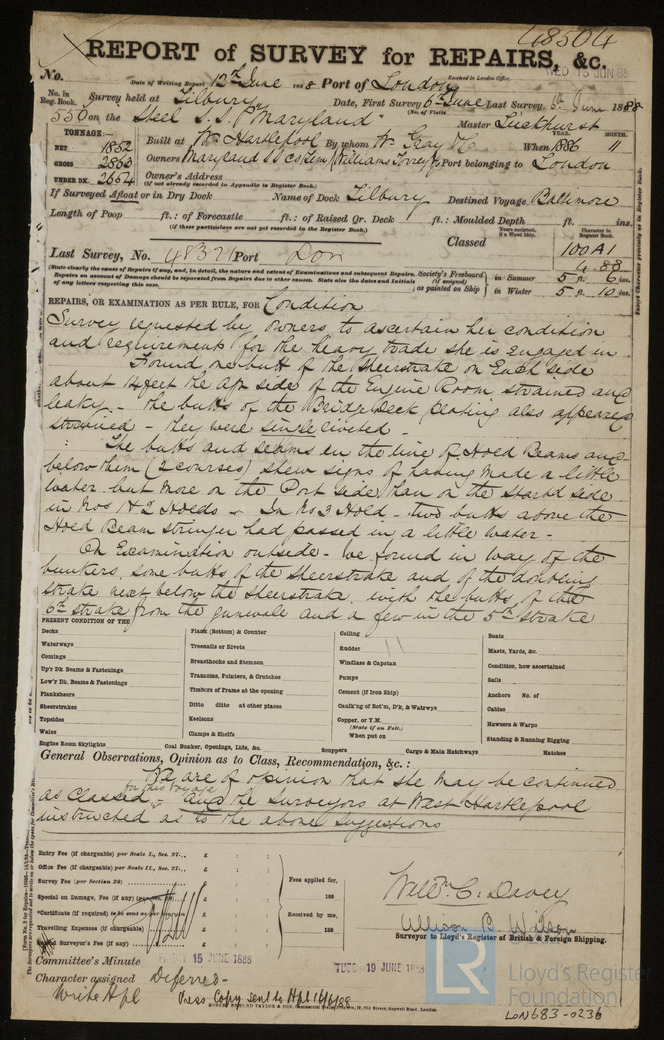 48504
REPORT of SURVEY for REPAIRS, &c.
No.
Date of Writing Report 13th June 1888 Port of London
Received in London Office.
WED 13 JUN 88
No. in Reg. Book. Survey held at Tilbury Date, First Survey 6th June Last Survey 8th June 1888
(No. of Visits
550 on the Steel S.S. "Maryland" Master Luckhurst
TONNAGE:—
NET 1852
GROSS 2863
UNDER DK. 2664
Built at W. Hartlepool By whom W Gray & Co When 1886 11
YEAR. MONTH.
Owners Maryland SS Co Lim (Williams Torrey & Port belonging to London
Owner's Address
(If not already recorded in Appendix to Register Book.)
If Surveyed Afloat or in Dry Dock Name of Dock Tilbury Destined Voyage Baltimore
Length of Poop ft.: of Forecastle ft.: of Raised Qr. Deck ft.: Moulded Depth ft. ins.
(If these particulars are not yet recorded in the Register Book.)
Years assigned, if a Wood Ship.
Character in Register Book.
Classed 100A1
4.88
Last Survey, No. 48321 Port Don
(State clearly the cause of Repairs if any, and, in detail, the nature and extent of Examinations and subsequent Repairs. Repairs on account of Damage should be separated from Repairs due to other causes. State also the dates and initials of any letters respecting this case.
Society's Freeboard (if assigned) as painted on Ship
in Summer 5 ft. 6 ins.
in Winter 5 ft. 10 ins.
REPAIRS, OR EXAMINATION AS PER RULE, FOR Condition
Survey requested by owners to ascertain her condition
and requirements for the heavy trade she is engaged in.
Found one butt of the sheerstrake on Each side
about 14 feet the aft side of the Engine Room strained and
leaky - The butts of the Bridge Deck plating also appeared
strained - they were single riveted -
The butts and seams in the line of Hold Beams and
below them (2 courses) shew signs of having made a little
water but more on the Port side than on the starbd side
in Nos 1 & 2 Holds - In No 3 Hold - two butts above the
Hold Beam stringer had passed in a little water -
On Examination outside - we found in way of the
bunkers, some butts of the sheerstrake and of the doubling
strake next below the sheerstrake, with the butts of the
6th strake from the gunwale and a few in the 5th strake
PRESENT CONDITION OF THE
Decks
Waterways
Comings
Up'r Dk. Beams & Fastenings
Low'r Dk. Beams & Fastenings
Planksheers
Sheerstrakes
Topsides
Wales
Engine Room Skylights
Plank (Bottom) & Counter
Treenails or Rivets
Breasthooks and Stemson
Transoms, Pointers, & Crutches
Timbers of Frame at the opening
Ditto ditto at other places
Keelsons
Clamps & Shelfs
Coal Bunker, Openings, Lids, &c.
Ceiling
Rudder
Windlass & Capstan
Pumps
Cement (if Iron Ship)
Caulk'ng of Bot'm, D'k, & Watrwys
Copper, or Y.M.
(State if on Felt.)
When put on
Scuppers
Cargo & Main Hatchways
Boats
Masts, Yards, &c.
Condition, how ascertained
Sails
Anchors No. of
Cables
Hawsers & Warps
Standing & Running Rigging
Hatches
General Observations, Opinion as to Class, Recommendation, &c.:
We are of opinion that she may be continued
for this voyage
as Classed - and the Surveyors at West Hartlepool
instructed as to the above suggestions
Entry Fee (if chargeable) per Scale I., Sec. 27... £ : :
Office Fee (if chargeable) per Scale II., Sec. 27... £ : :
Survey Fee (per Section 28) £ : :
Special on Damage, Fee (if any) (per Sec. £ : :
*Certificate (if required) to be sent as per margin £ : :
Travelling Expenses (if chargeable) £ : :
Survey's Fee (if any) £ : :
Fees applied for,
188
Received by me,
188
Willm. C. Davey
Allison B Wilson
Surveyor to Lloyd's Register of British & Foreign Shipping.
Committee's Minute FRIDAY 15 JUNE 1888
TUES 19 JUNE 1888
Character assigned Deferred -
Write Hpl
Press Copy sent to Hpl 16/6/88
LR
Lloyd's Register
Foundation
LON683-0236